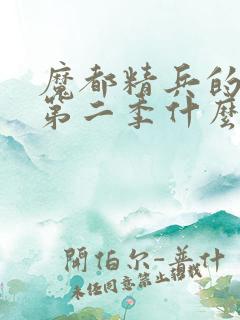 魔都精兵的
第二季什麼
開伯尔-普什
未经同意禁止转载